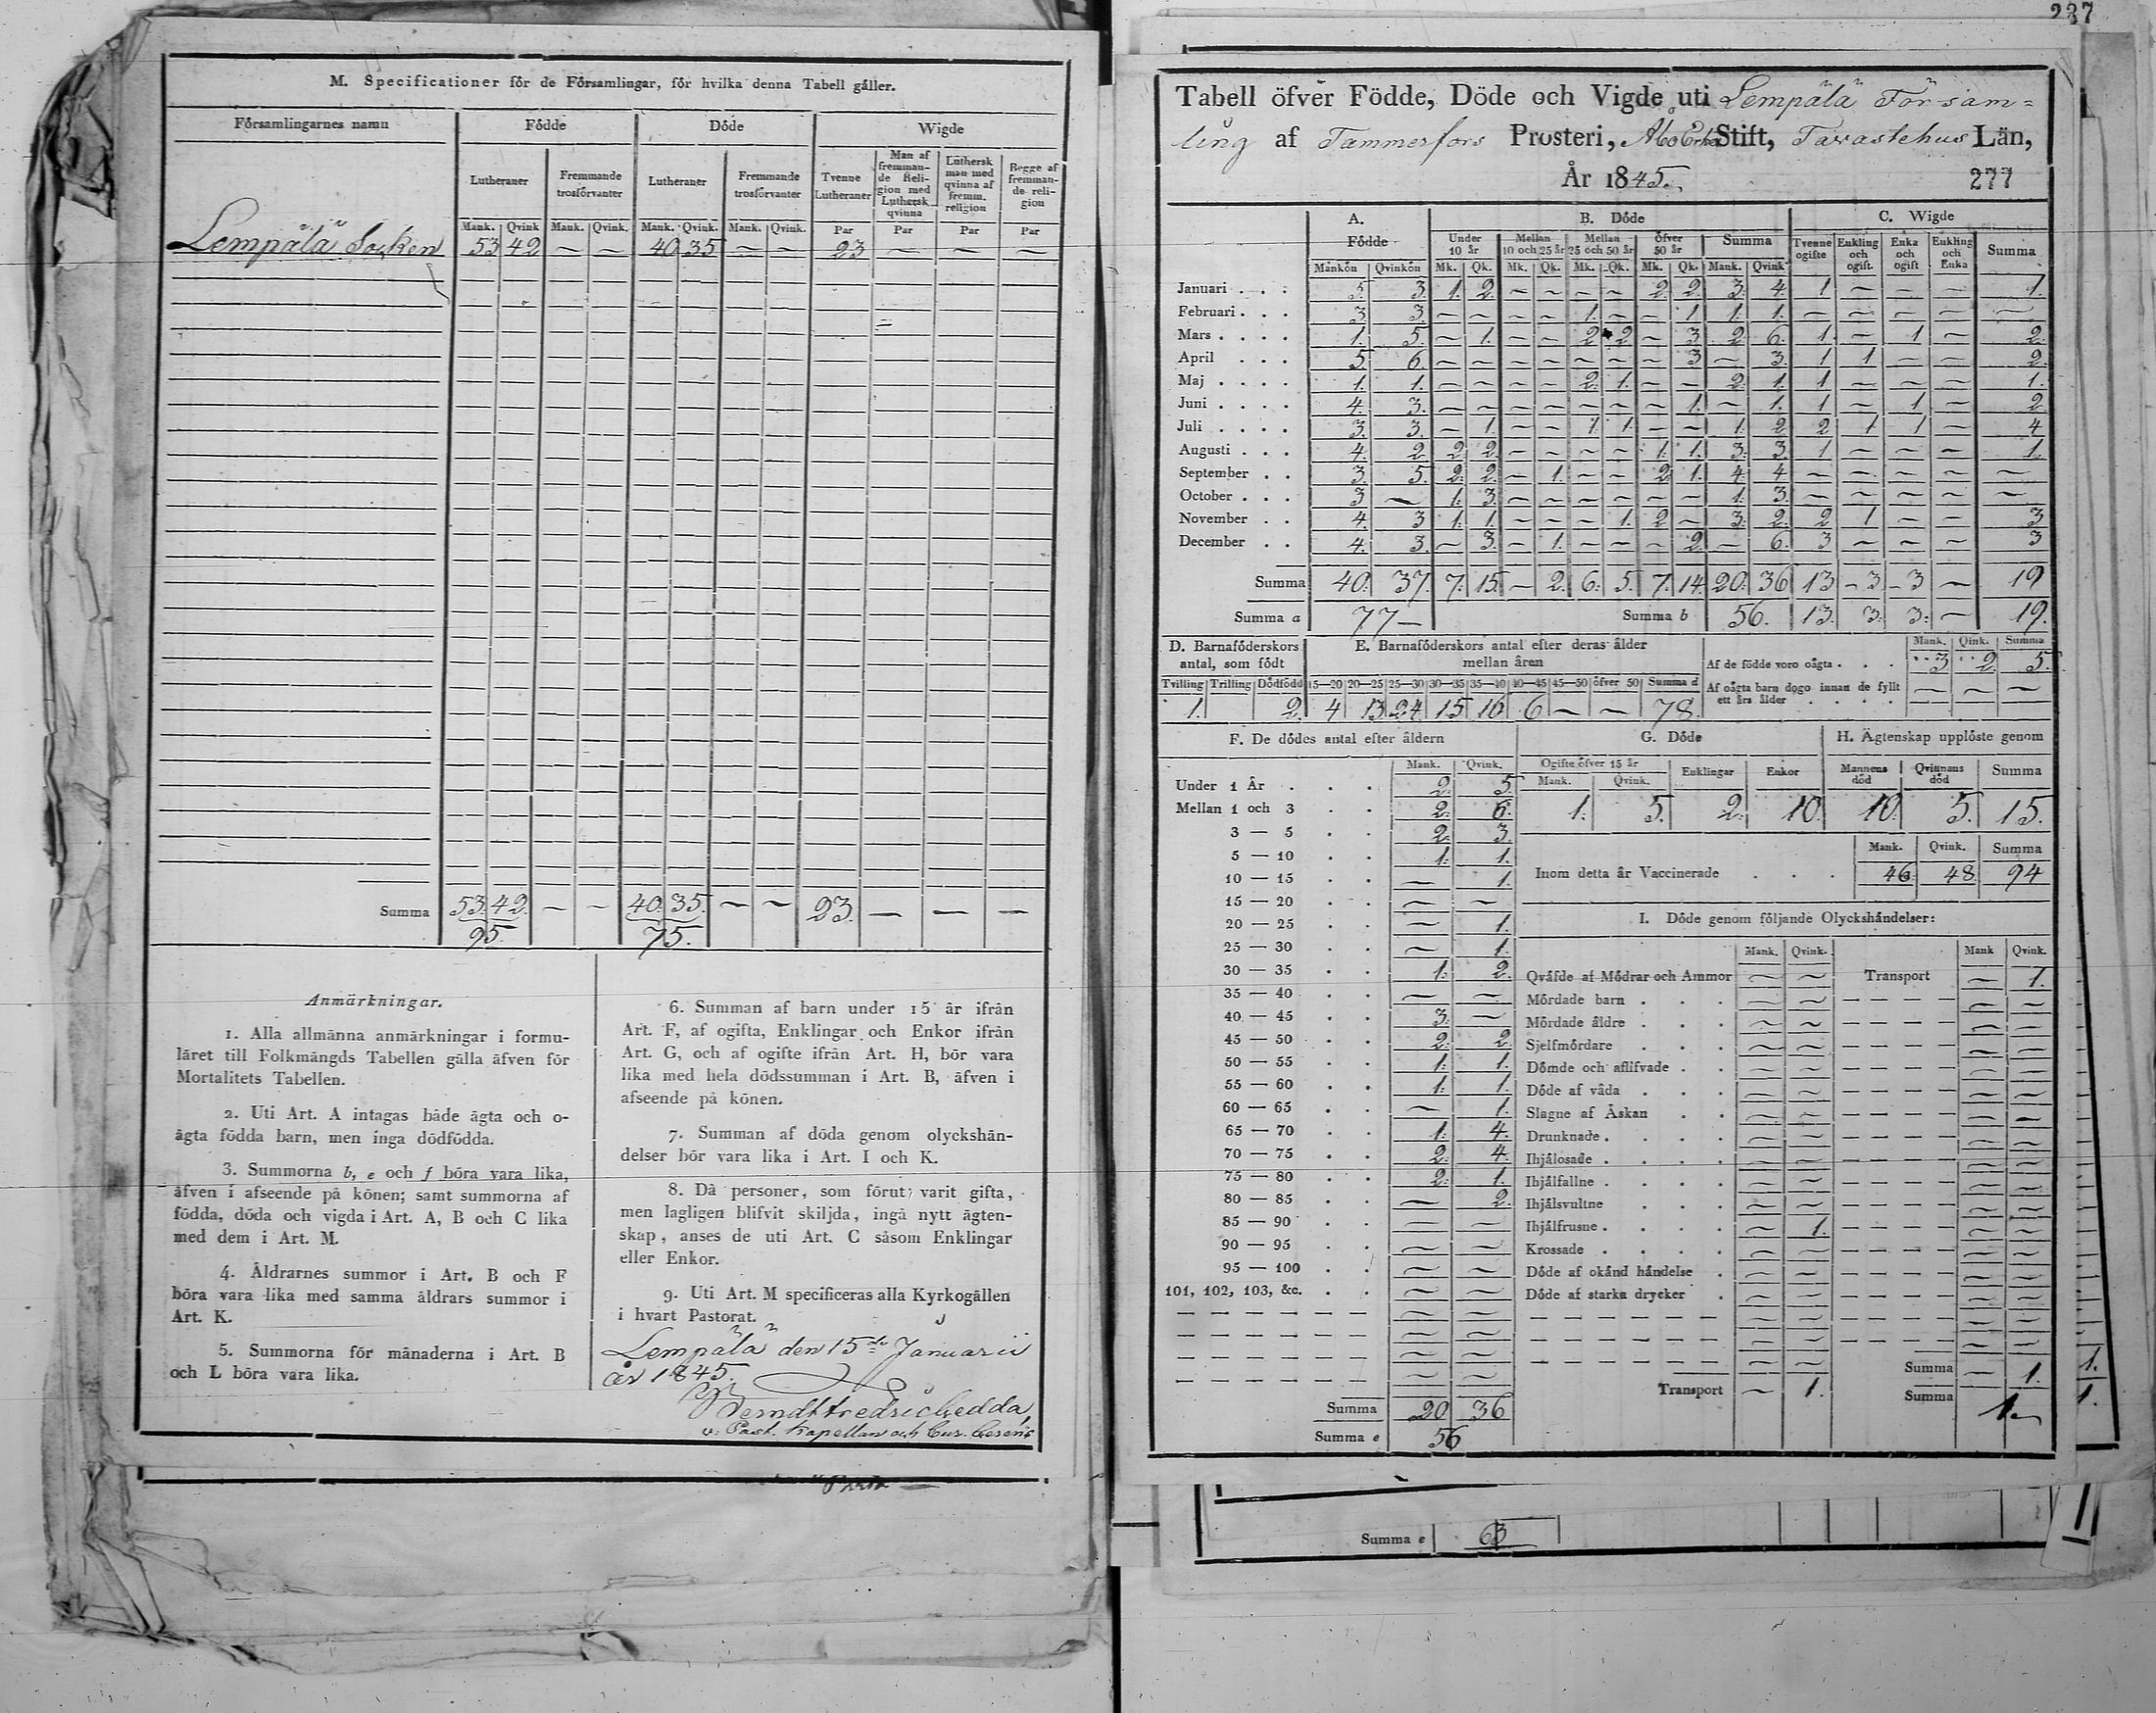 M. Specificationer för de Församlingar, för hvilka denna Tabell gäller.
Församlingarnes namn Födde Döde Wigde
Lutheraner Fremmande trosförvanter Lutheraner Fremmande trosförvanter Tvenne Lutheraner Man af fremmande Religion med Luthersk qvinna Luthersk man med qvinna af fremm. religion Begge af fremmande religion
Mank. Qvink Mank. Qvink. Mank. Qvink. Mank. Qvink. Par Par Par Par
Lempälä Socken 53 42 — — 40 35 — — 23 — — —
Summa 53. 42. — — 40. 35. — — 23. — — —
95. 75.
Anmärkningar.
1. Alla allmänna anmärkningar i formu-
läret till Folkmängds Tabellen gälla äfven för
Mortalitets Tabellen.
2. Uti Art. A intagas både ägta och o-
ägta födda barn, men inga dödfödda.
3. Summorna b, e och f böra vara lika,
äfven i afseende på könen; samt summorna af
födda, döda och vigda i Art. A, B och C lika
med dem i Art. M.
4. Åldrarnes summor i Art. B och F
böra vara lika med samma åldrars summor i
Art. K.
5. Summorna för månaderna i Art. B
och L böra vara lika.
6. Summan af barn under 15 år ifrån
Art. F, af ogifta, Enklingar och Enkor ifrån
Art. G, och af ogifte ifrån Art. H, bör vara
lika med hela dödssumman i Art. B, äfven i
afseende på könen.
7. Summan af döda genom olyckshän-
delser bör vara lika i Art. I och K.
8. Då personer, som förut varit gifta,
men lagligen blifvit skiljda, ingå nytt ägten-
skap, anses de uti Art. C såsom Enklingar
eller Enkor.
9. Uti Art. M specificeras alla Kyrkogällen
i hvart Pastorat.
Lempälä den 15de Januarii
år 1845.
v: Past. Kapellan och
237
Tabell öfver Födde, Döde och Vigde uti Lempälä Försam=
ling af Tammerfors Prosteri, Åbo Erke Stift, Tavastehus Län,
År 1845. 277
A. B. Döde C. Wigde
Födde Under 10 år Mellan 10 och 25 år Mellan 25 och 50 år Öfver 50 år Summa Tvenne ogifte Enkling och ogift. Enka och ogift Enkling och Enka Summa
Mankön Qvinkön Mk. Qk. Mk. Qk. Mk. Qk. Mk. Qk. Mank. Qvink
Januari . . . 5. 3. 1. 2. — — — — 2. 2. 3. 4. 1 — — — 1.
Februari . . . 3 3. — — — — 1. — — 1 1. 1. — — — — —
Mars . . . . 1. 5. — 1. — — 2 2 — 3 2. 6. 1 — 1 — 2.
April . . . 5. 6. — — — — — — — 3 — 3. 1 1 — — 2.
Maj . . . . 1. 1. — — — — 2. 1. — — 2. 1. 1 — — — 1.
Juni . . . . 4. 3. — — — — — — — 1. — 1. 1 — 1 — 2
Juli . . . . 3. 3. — 1. — — 1. 1. — — 1. 2 2 1 1 — 4
Augusti . . . 4. 2 2. 2. — — — — 1. 1. 3. 3. 1 — — — 1.
September . . 3. 5. 2. 2. — 1. — — 2 1. 4. 4 — — — — —
October . . . 3 — 1. 3. — — — — — — 1. 3. — — — — —
November . . 4. 3 1. 1. — — — 1. 2 — 3. 2. 2 1 — — 3
December . . 4. 3. — 3. — 1. — — — 2. — 6. 3 — — — 3
Summa 40. 37. 7. 15. — 2. 6. 5. 7. 14. 20. 36 13 3 3 — 19
Summa a 77— Summa b 56. 13. 3. 3. — 19.
D. Barnaföderskors antal, som födt E. Barnaföderskors antal efter deras ålder mellan åren Mank. Qink. Summa
Af de födde voro oägta . . . 3 2 5.
Tvilling Trilling Dödfödd 15—20 20—25 25—30 30—35 35—40 40—45 45—50 öfver 50 Summa d
Af oägta barn dogo innan de fyllt ett års ålder . . . . — — —
1. 2. 4 13 24 15 16 6 — — 78.
F. De dödes antal efter åldern G. Döde H. Ägtenskap upplöste genom
Mank. Qvink. Ogifte öfver 15 år Enklingar Enkor Mannens död Qvinnans död Summa
Mank. Qvink.
1. 5. 2. 10. 10. 5. 15.
Under 1 År . . . 2. 5
Mellan 1 och 3 2. 6.
3 — 5 . . 2. 3.
5 — 10 . . 1. 1.
10 — 15 . . — 1.
15 — 20 . . — —
20 — 25 . . — 1.
25 — 30 . . — 1.
30 — 35 . . 1. 2.
35 — 40 . . — —
40 — 45 . . 3. —
45 — 50 . . 2. 2
50 — 55 . . 1. 1.
55 — 60 . . 1. 1.
60 — 65 . . — 1.
65 — 70 . . 1. 4.
70 — 75 . . 2. 4.
75 — 80 . . 2. 1.
80 — 85 . . — 2.
85 — 90 . . — —
90 — 95 . . — —
95 — 100 . . — —
101, 102, 103, &c. . . — —
Summa 20 36
Summa e 56
Mank. Qvink. Summa
Inom detta år Vaccinerade . . . 46. 48 94
I. Döde genom följande Olyckshändelser:
Mank. Qvink. Mank Qvink.
Qväfde af Mödrar och Ammor — — Transport — 1.
Mördade barn . . . — —
Mördade äldre . . . — —
Sjelfmördare . . — —
Dömde och aflifvade . . — —
Döde af våda . . . — —
Slagne af Åskan . . — —
Drunknade . . . . — —
Ihjälosade . . . . — —
Ihjälfallne . . . . — —
Ihjälsvultne . . . — —
Ihjälfrusne . . . . — 1.
Krossade . . . . — —
Döde af okänd händelse . — —
Döde af starka drycker . — —
Summa — 1.
Transport — 1. Summa 1.
1.
1.
Summa e 63